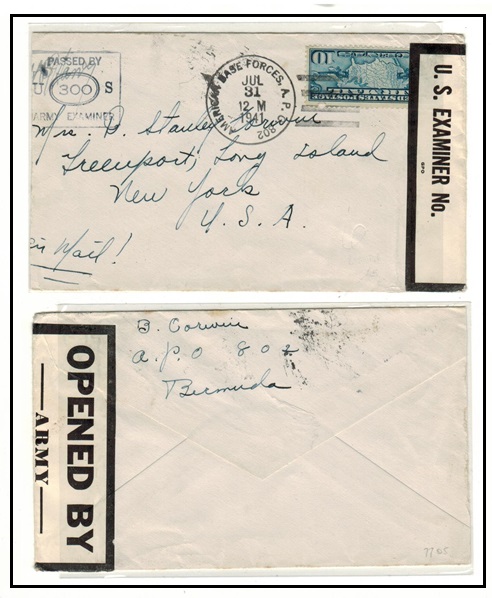 PASSED BY
U 300 S
ARMY EXAMINER
AMERICAN BASE FORCES, A. P. O. 802
JUL
31
12-M
1941
Mrs. D. Stanley Corwin
Greenport, Long Island
New York
U. S. A.
Air Mail!
U. S. EXAMINER No.
OPENED BY
ARMY
S. Corwin
A. P. O 802
Bermuda
7705